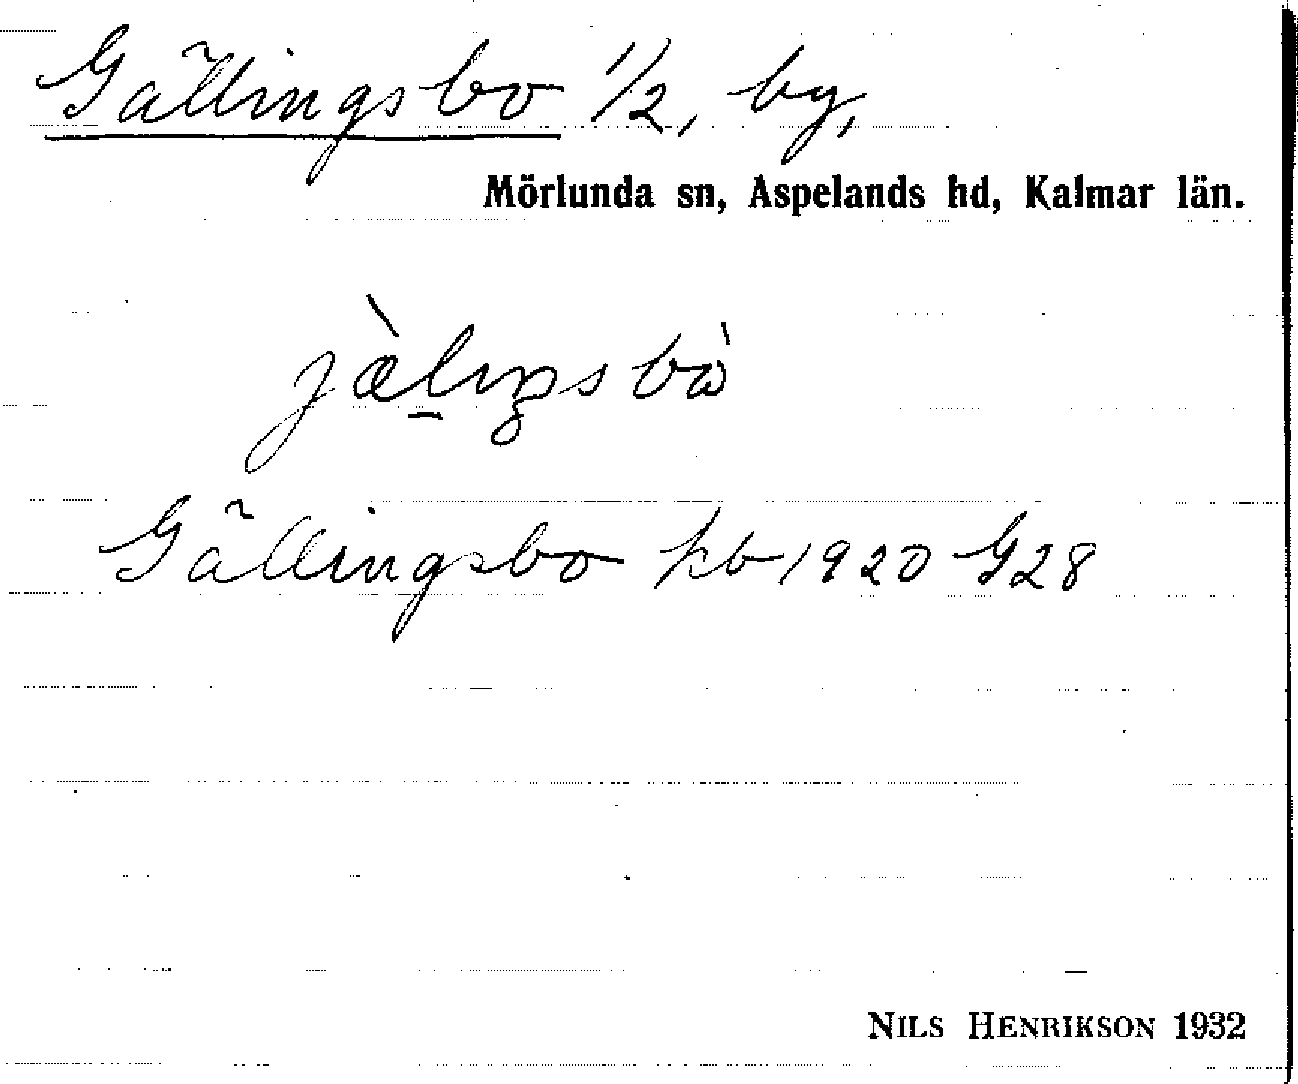 Gällingsbo 1/2, by,
Mörlunda sn, Aspelands hd, Kalmar län.
jæ̀lıŋsbò
Gällingsbo kb 1920 G28
NILS HENRIKSON 1932